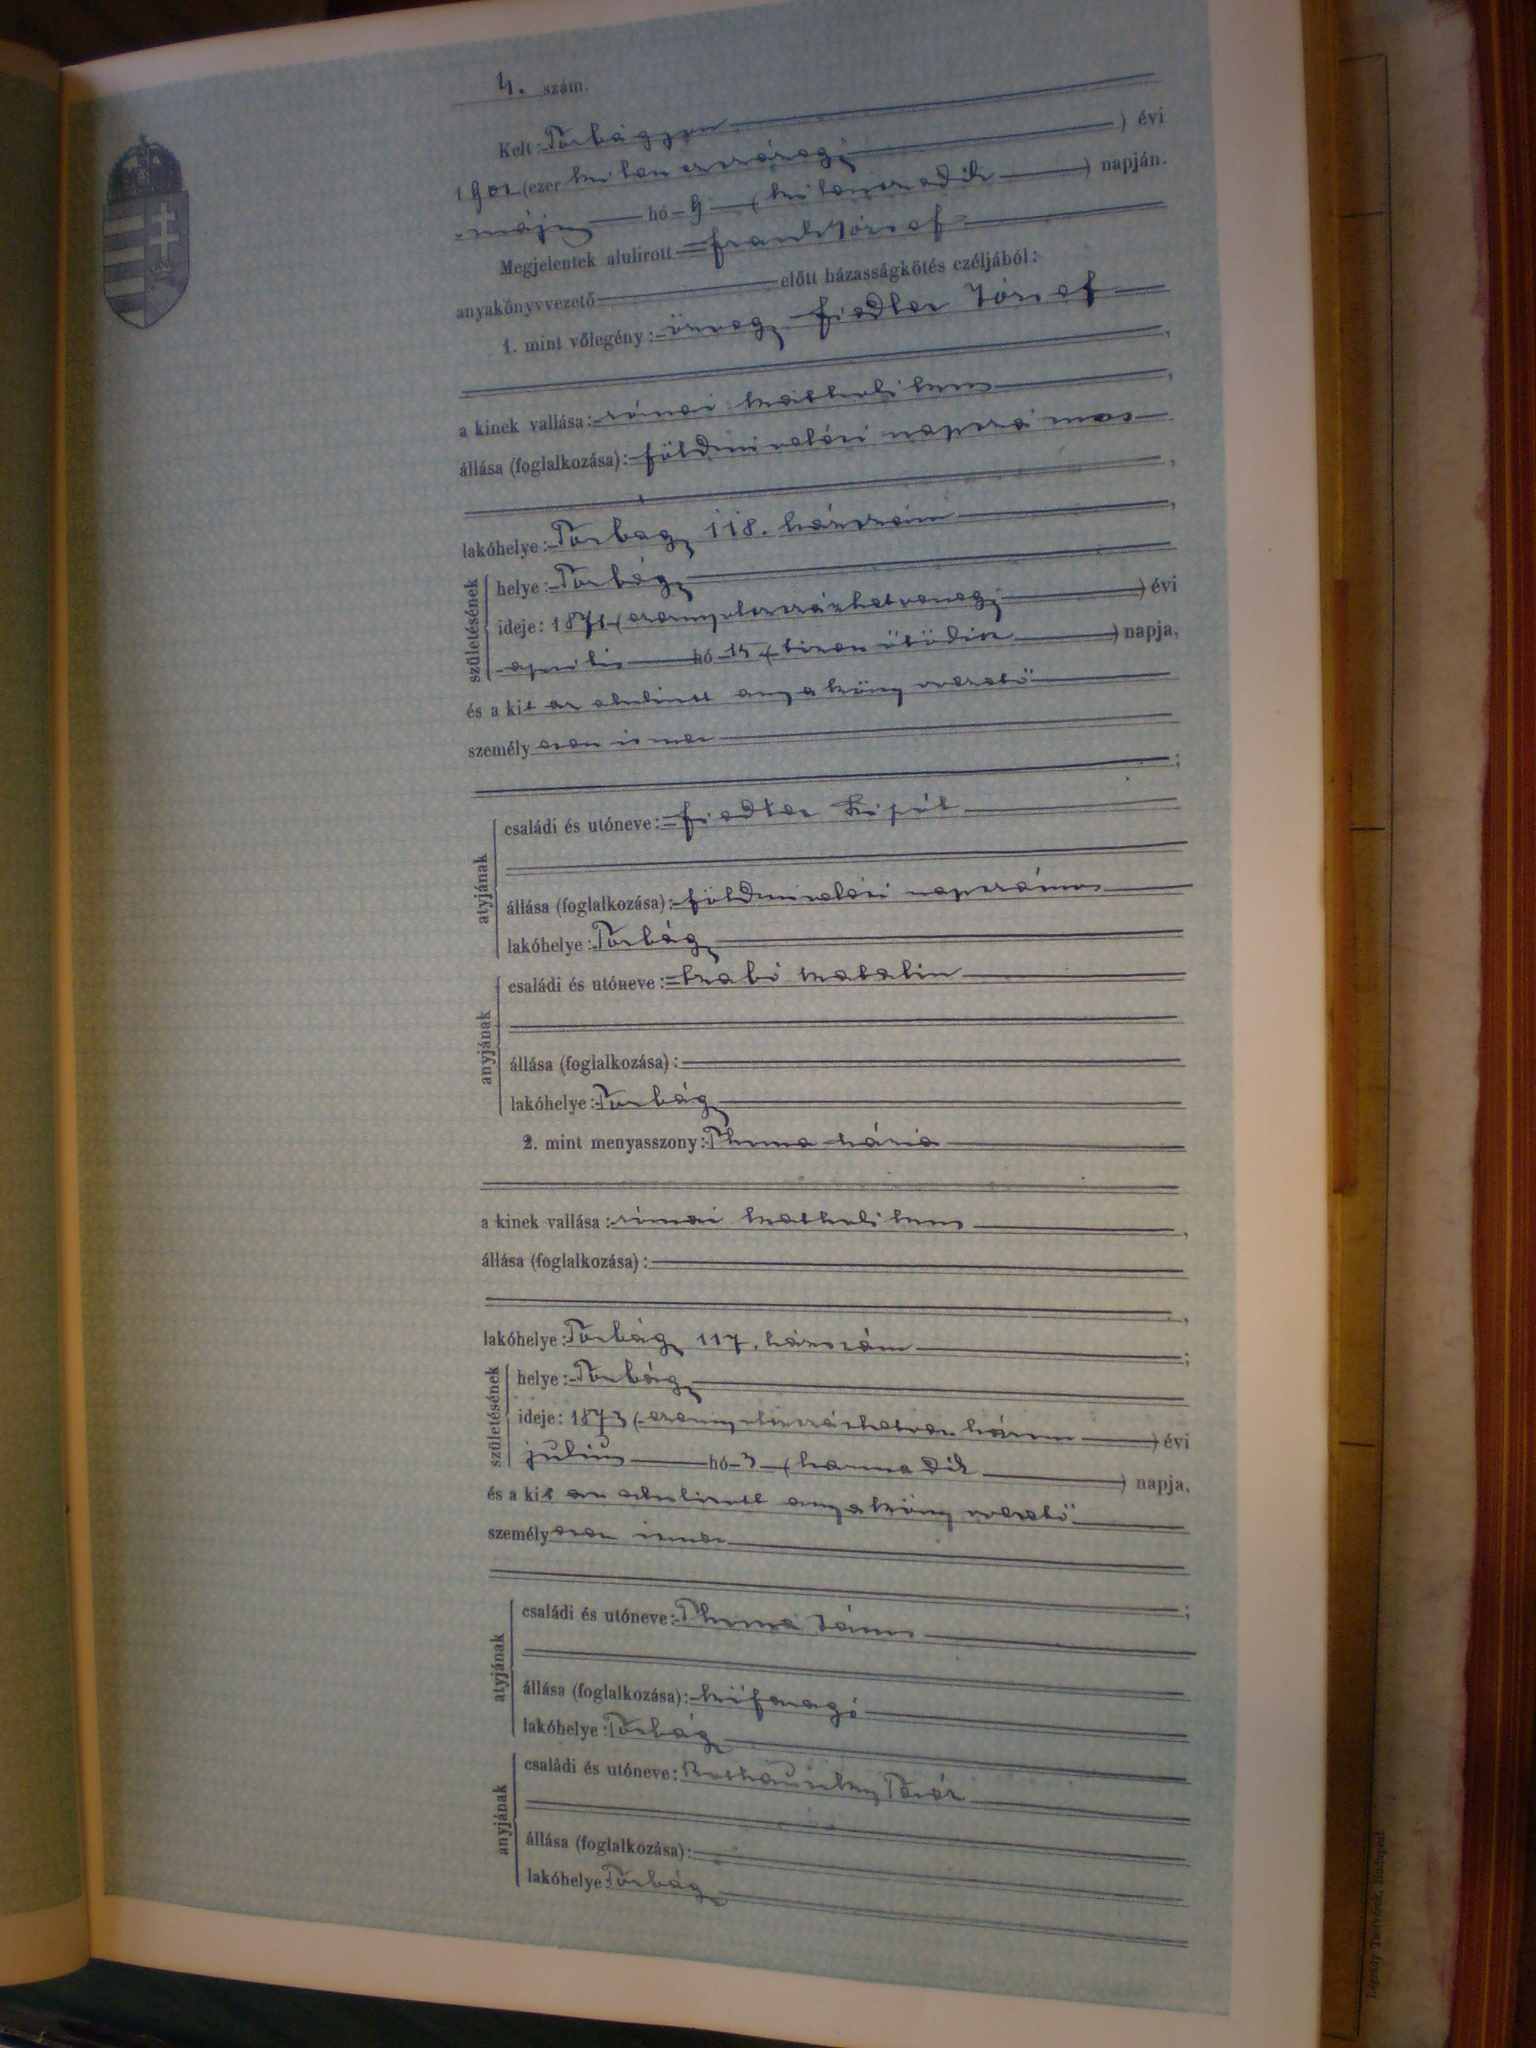 4. szám.
Kelt: Torbágyon
1901 (ezer kilenczszázegy) évi
május hó 9 (kilenczedik) napján.
Megjelentek alulirott Frank József
anyakönyvvezető előtt házasságkötés czéljából:
1. mint vőlegény: özvegy Fiedler József
a kinek vallása: római katholikus
állása (foglalkozása): földmivelési napszámos
lakóhelye: Torbágy 118. házszám
születésének
helye: Torbágy
ideje: 1871 (ezernyolczszázhetvenegy) évi
április hó 15 (tizenötödik) napja,
és a kit az alulirott anyakönyvvezető
személyesen ismer
atyjának
családi és utóneve: Fiedler Lipót
állása (foglalkozása): földmivelési napszámos
lakóhelye: Torbágy
anyjának
családi és utóneve: Szabó Katalin
állása (foglalkozása):
lakóhelye: Torbágy
2. mint menyasszony: Thoma Mária
a kinek vallása: római katholikus
állása (foglalkozása):
lakóhelye: Torbágy 117. házszám
születésének
helye: Torbágy
ideje: 1873 (ezernyolczszázhetvenhárom) évi
julius hó 3 (harmadik) napja,
és a kit az alulirott anyakönyvvezető
személyesen ismer
atyjának
családi és utóneve: Thoma János
állása (foglalkozása): kőfaragó
lakóhelye: Torbágy
anyjának
családi és utóneve: Teréz
állása (foglalkozása):
lakóhelye: Torbágy
Légrády Testvérek, Budapest